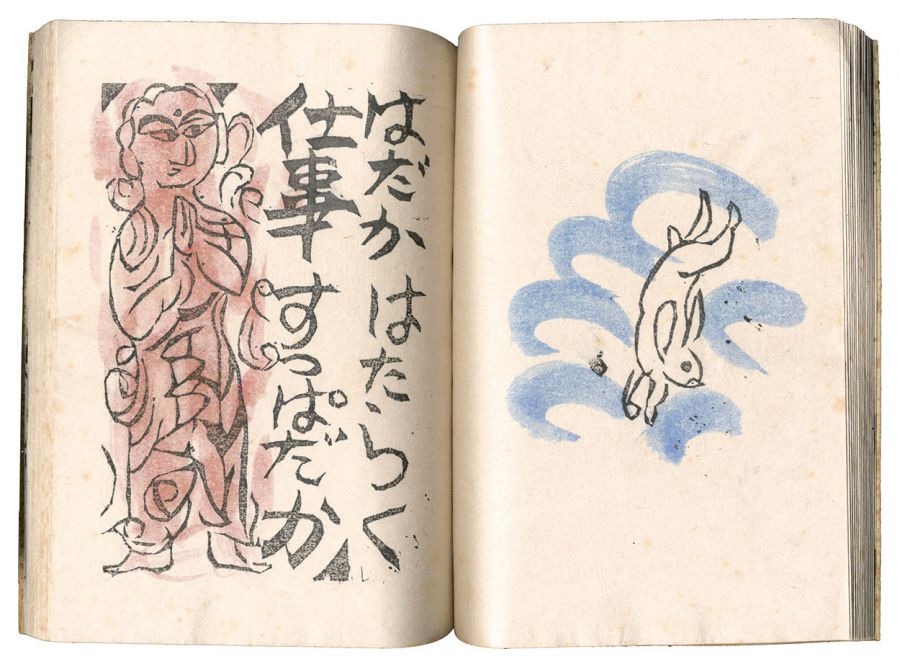 はだか はたらく
仕事 すっぱだか